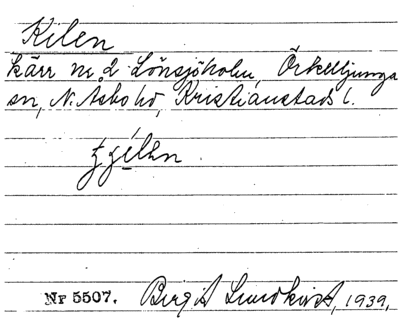 Kilen
kärr nr 2 Lönsjöholm, Örkelljunga
sn, N. Åsbo hd, Kristianstads l.
Nr 5507. Birgit Lundkvist, 1939.